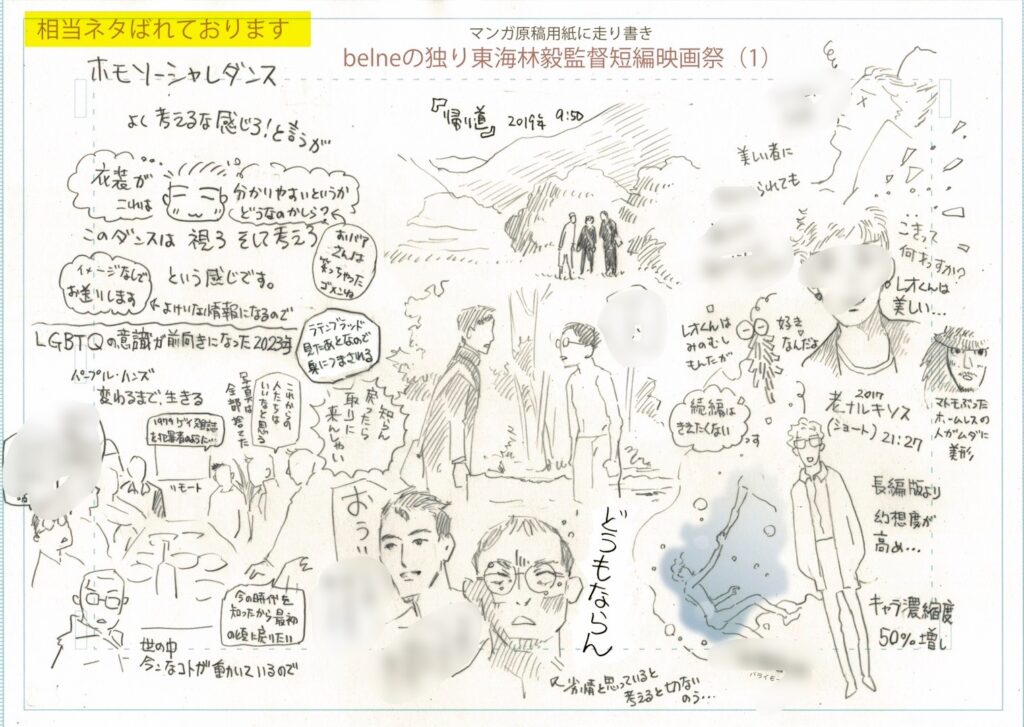 相当ネタばれております
マンガ原稿用紙に走り書き
belneの独り東海林毅監督短編映画祭（1）
ホモソーシャルダンス
よく考えるな感じろ！と言うが
衣装が
これは
分かりやすいというか
どうなのかしら？
このダンスは 視ろ そして考えろ
という感じです。
おバア
さんは
笑っちゃった
ゴメンね
イメージなしで
お送りします
←よけいな情報になるので
LGBTQの意識が前向きになった2023年
ラテンブラッド
見たあとなので
鼻につまされる
パープル・ハンズ
変わるまで、生きる
これからの
人たちは
いいなと思う
写真は
全部捨てた
リモート
今の時代を
知ったから最初
の頃に戻りたい
世の中
今こんなコトが重かいているので
『帰り道』 2019年 9:50
取りに
来んしゃい
おぅ‥
どうもならん
劣情と思っていると
考えると切ない
のう…
美しい者に
られても
こきって
何すっか？
レオくんは
美しい…
レオくんは
みのむし
もんたが
好き
なんだよ
続編は
ききたくない
っす
マトモぶった
ホームレスの
人がムダに
美形
2017
老ナルキソス
(ショート) 21:27
長編版より
幻想度が
高め…
キャラ濃縮度
50%増し
バライモー